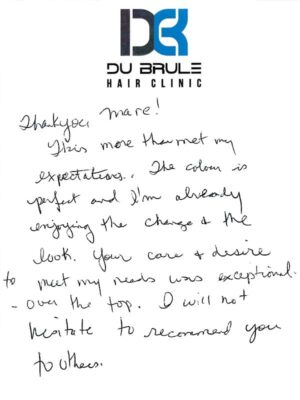 DU BRULE
HAIR CLINIC
Thankyou Marc!
This more than met my
expectations. The colour is
perfect and I'm already
enjoying the change & the
look. Your care & desire
to meet my needs was exceptional.
- over the top. I will not
hesitate to recommend you
to others.